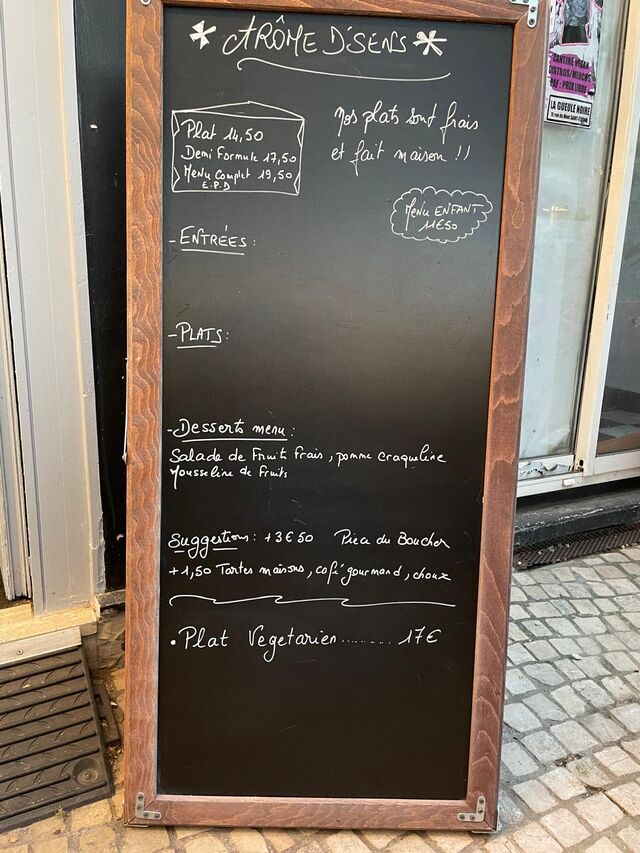 * ARÔME D'SENS *
Plat 14,50
Demi Formule 17,50
Menu Complet 19,50
E.P.D
nos plats sont frais
et fait maison !!
MENU ENFANT
11€50
- ENTRÉES :
- PLATS :
- Desserts menu :
Salade de Fruit frais, pomme craqueline
Mousseline de fruits
Suggestions : +3€50 Pièce du Boucher
+1,50 Tartes maisons, café gourmand, choux
• Plat Vegetarien .......... 17€
CANTINE VEGAN
DISTROS/MERCHS
PAF : PRIX LIBRE
LA GUEULE NOIRE